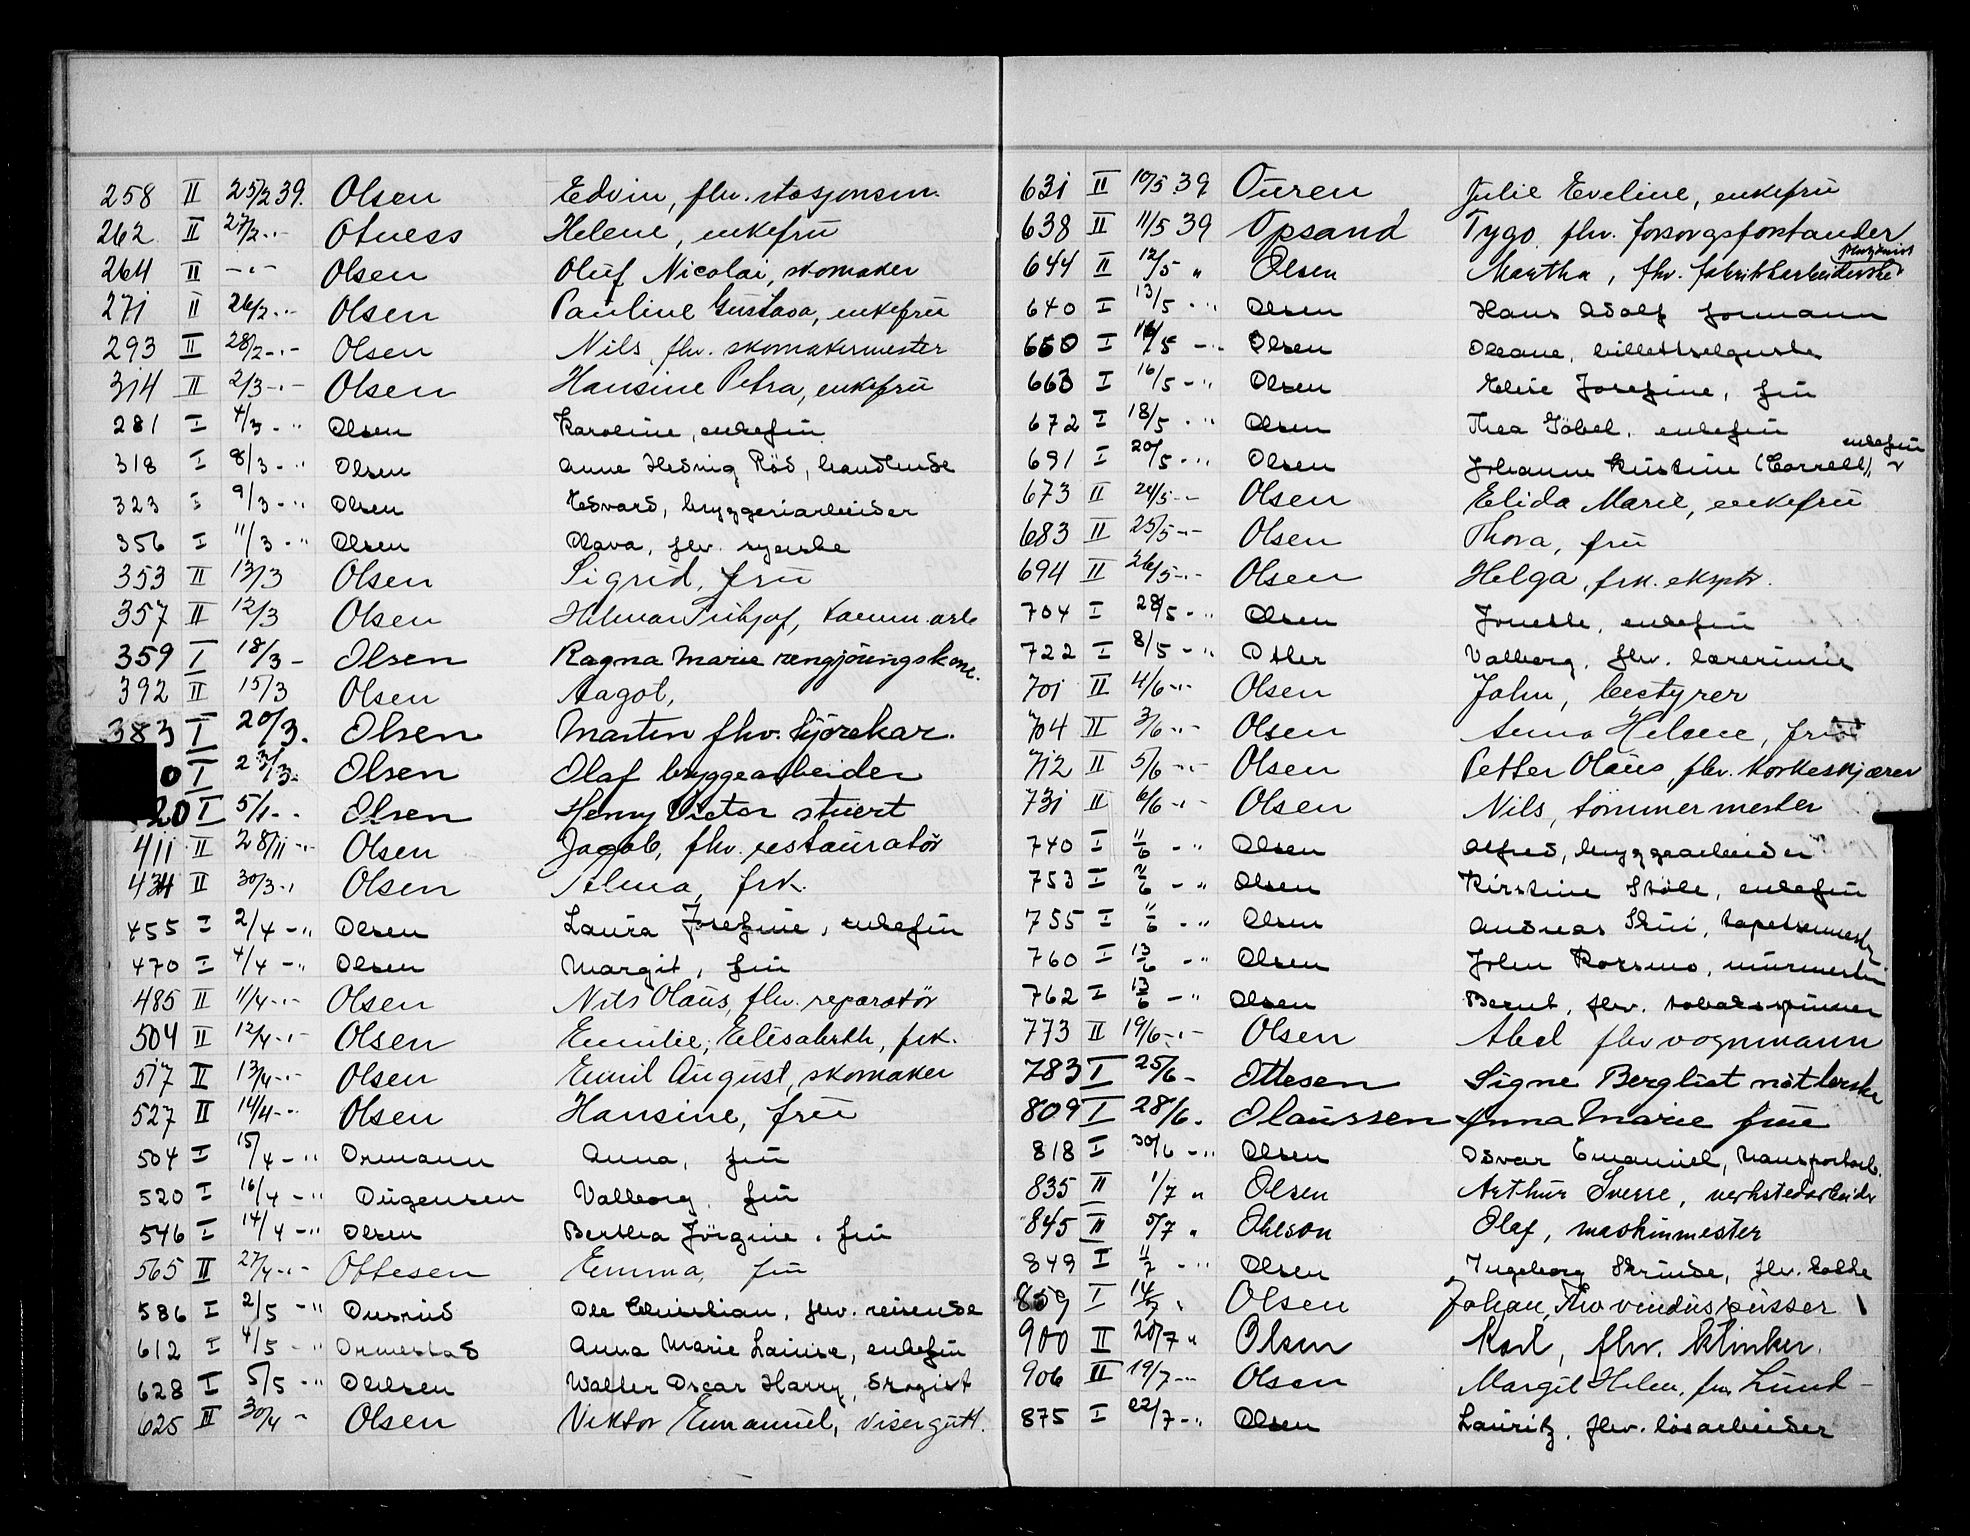 258 II 25/2 39. Olsen Edvin, fhv. stasjonsm.
262 II 27/2 -"- Otness Helene, enkefru
264 II -"- Olsen Oluf Nicolai, skomaker
271 II 26/2 -"- Olsen Pauline Gustava, enkefru
293 II 28/2 -"- Olsen Nils, fhv. skomakermester
314 II 2/3 -"- Olsen Hansine Petra, enkefru
281 I 4/3 -" Olsen Karoline, enkefru
318 I 8/3 -" Olsen Anne Hedvig Röd, handlende
323 I 9/3 -" Olsen Edvard, bryggeriarbeider
356 I 11/3 -" Olsen Olava, fhv. syerske
353 II 13/3 Olsen Sigrid, fru
357 II 12/3 Olsen Hilmar Fritjof, tømm.arb
359 I 18/3 - Olsen Ragna Marie rengjöringskone.
392 II 15/3 Olsen Aagot,
383 I 20/3. Olsen Martin fhv. kjörekar.
0 I 23/3. Olsen Olaf bryggearbeider
20 I 5/1 - Olsen Henry Victor stuert
411 II 28/11 -"- Olsen Jagob, fhv. restauratör
434 II 30/3 -" Olsen Alma, frk.
455 I 2/4 -" Olsen Laura Josefine, enkefru
470 I 4/4 -" Olsen Margit, fru
485 II 11/4 -"- Olsen Nils Olaus, fhv. reparatör
504 II 12/4 -"- Olsen Emilie, Elisabeth, frk.
517 II 13/4 -"- Olsen Emil August, skomaker
527 II 14/4 -"- Olsen Hansine, fru
504 I 15/4 -" Ormann Anna, fru
520 I 16/4 -" Ougensen Valborg, fru
546 I 14/4 -" Olsen Bertha Jörgine, fru
565 II 27/4 -"- Ottesen Emma, fru
586 I 2/5 -" Ousrud Ole Christian, fhv. reisende
612 I 4/5 -" Ormestad Anna Marie Louise, enkefru
628 I 5/5 -" Olelsen Walter Oscar Harry, drogist
625 II 30/4 - Olsen Viktor Emanuel, visergutt.
631 II 10/5 39 Ouren Julie Eveline, enkefru
638 II 11/5 39 Opsand Tygo fhv. forsorgsforstander
644 II 12/5 " Olsen Martha, fhv. fabrikkarbeiderske
640 I 13/5 -" Olsen Hans Adolf formann
650 I 14/5 -" Olsen Oleane, billettselgerske
663 I 16/5 -" Olsen Elise Josefine, fru
672 I 18/5 -" Olsen Thea Göbel, enkefru
691 I 20/5 -" Olsen Johanne Kristine (Correll), enkefru
673 II 24/5 -"- Olsen Elida Marie, enkefru
683 II 25/5 -"- Olsen Thora, fru
694 II 26/5 -"- Olsen Helga, frk. eksptr.
704 I 28/5 -" Olsen Jonette, enkefru
722 I 8/5 -" Otler Valborg, fhv. lærerinne
701 II 4/6 -"- Olsen John, bestyrer
704 II 3/6 -"- Olsen Anna Helene, fru
712 II 5/6 -"- Olsen Petter Olaus, fhv. korkeskjærer
731 II 6/6 -"- Olsen Nils, tömmermester
740 I 11/6 -" Olsen Alfred, bryggearbeider
753 I 11/6 -" Olsen Kirstine Stöle, enkefru
755 I 11/6 -" Olsen Andreas Skui, tapetsermester
760 I 13/6 -" Olsen John Korsmo, murmester
762 I 13/6 -" Olsen Bernt, fhv. tobakkspinner
773 II 19/6 -"- Olsen Abel fhv vognmann
783 I 25/6 - Ottesen Signe Bergliot nötterske
809 I 28/6. Olaussen Anna Marie frue
818 I 30/6 -" Olsen Osvar Emanuel, transportarb.
835 II 1/7 " Olsen Arthur Sverre, verkstedarbeider
845 II 5/7 " Ohlson Olaf, maskinmester
849 I 11/7 -" Olsen Ingeborg Skrinde, fhv. kokke
859 I 14/7 " Olsen Johan, Fhv vinduspusser
900 II 20/7 " Olsen Karl, fhv. klinker.
906 II 19/7 -"- Olsen Margit Helen, fru Lund-
875 I 22/7 -" Olsen Lauritz, fhv. lösarbeider